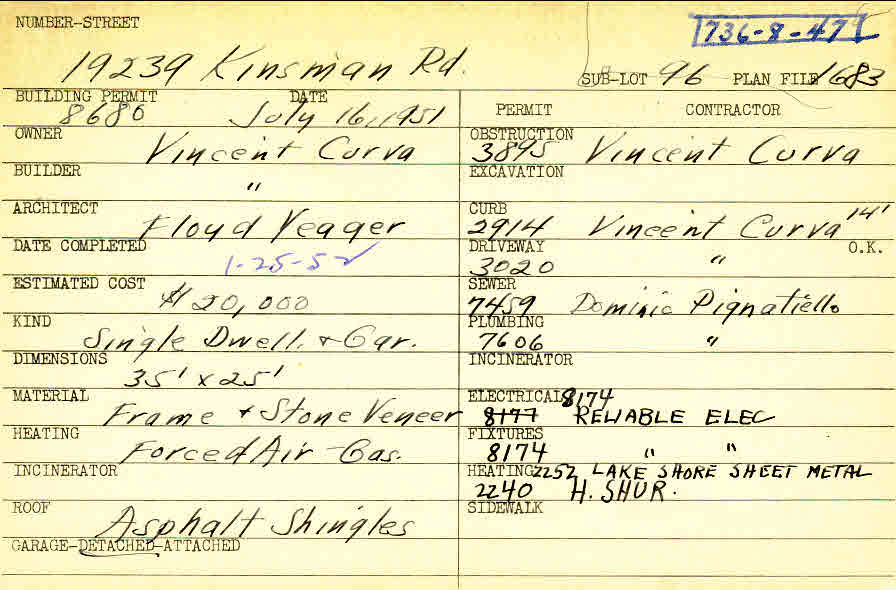 NUMBER-STREET
736-8-47
19239 Kinsman Rd.
SUB-LOT 96 PLAN FILE 1683
BUILDING PERMIT DATE
8680 July 16, 1951
PERMIT CONTRACTOR
OWNER
Vincent Curva
OBSTRUCTION
3895 Vincent Curva
BUILDER
"
EXCAVATION
ARCHITECT
Floyd Yeager
CURB
2914 Vincent Curva 14'
DATE COMPLETED
1-25-52
DRIVEWAY O.K.
3020 "
ESTIMATED COST
$20,000
SEWER
7459 Dominic Pignatiello
KIND
Single Dwell. + Gar.
PLUMBING
7606 "
DIMENSIONS
35' x 25'
INCINERATOR
MATERIAL
Frame + Stone Veneer
ELECTRICAL 8174
8177 RELIABLE ELEC
HEATING
Forced Air - Gas.
FIXTURES
8174 " "
INCINERATOR
HEATING 2252 LAKE SHORE SHEET METAL
2240 H. SHUR.
ROOF
Asphalt Shingles
SIDEWALK
GARAGE-DETACHED-ATTACHED